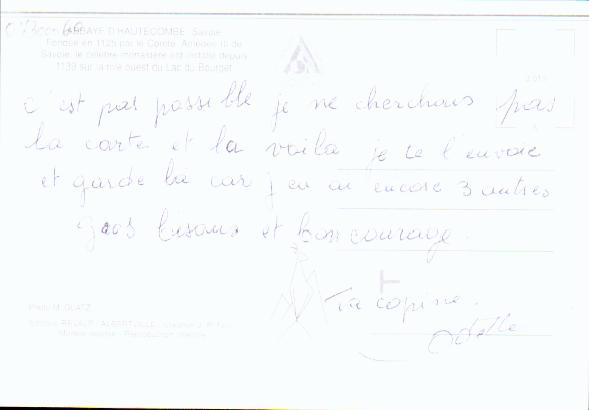 ABBAYE D'HAUTECOMBE Savoie
Fondée en 1125 par le Comte Amédée III de
Savoie, le célèbre monastère est installé depuis
1139 sur la rive ouest du Lac du Bourget
c'est pas possible je ne cherchais pas
la carte et la voila je te l'envoie
et garde la car j en ai encore 3 autres
gros bisous et bon courage.
Ta copine.
Odette
Photo M. GLATZ